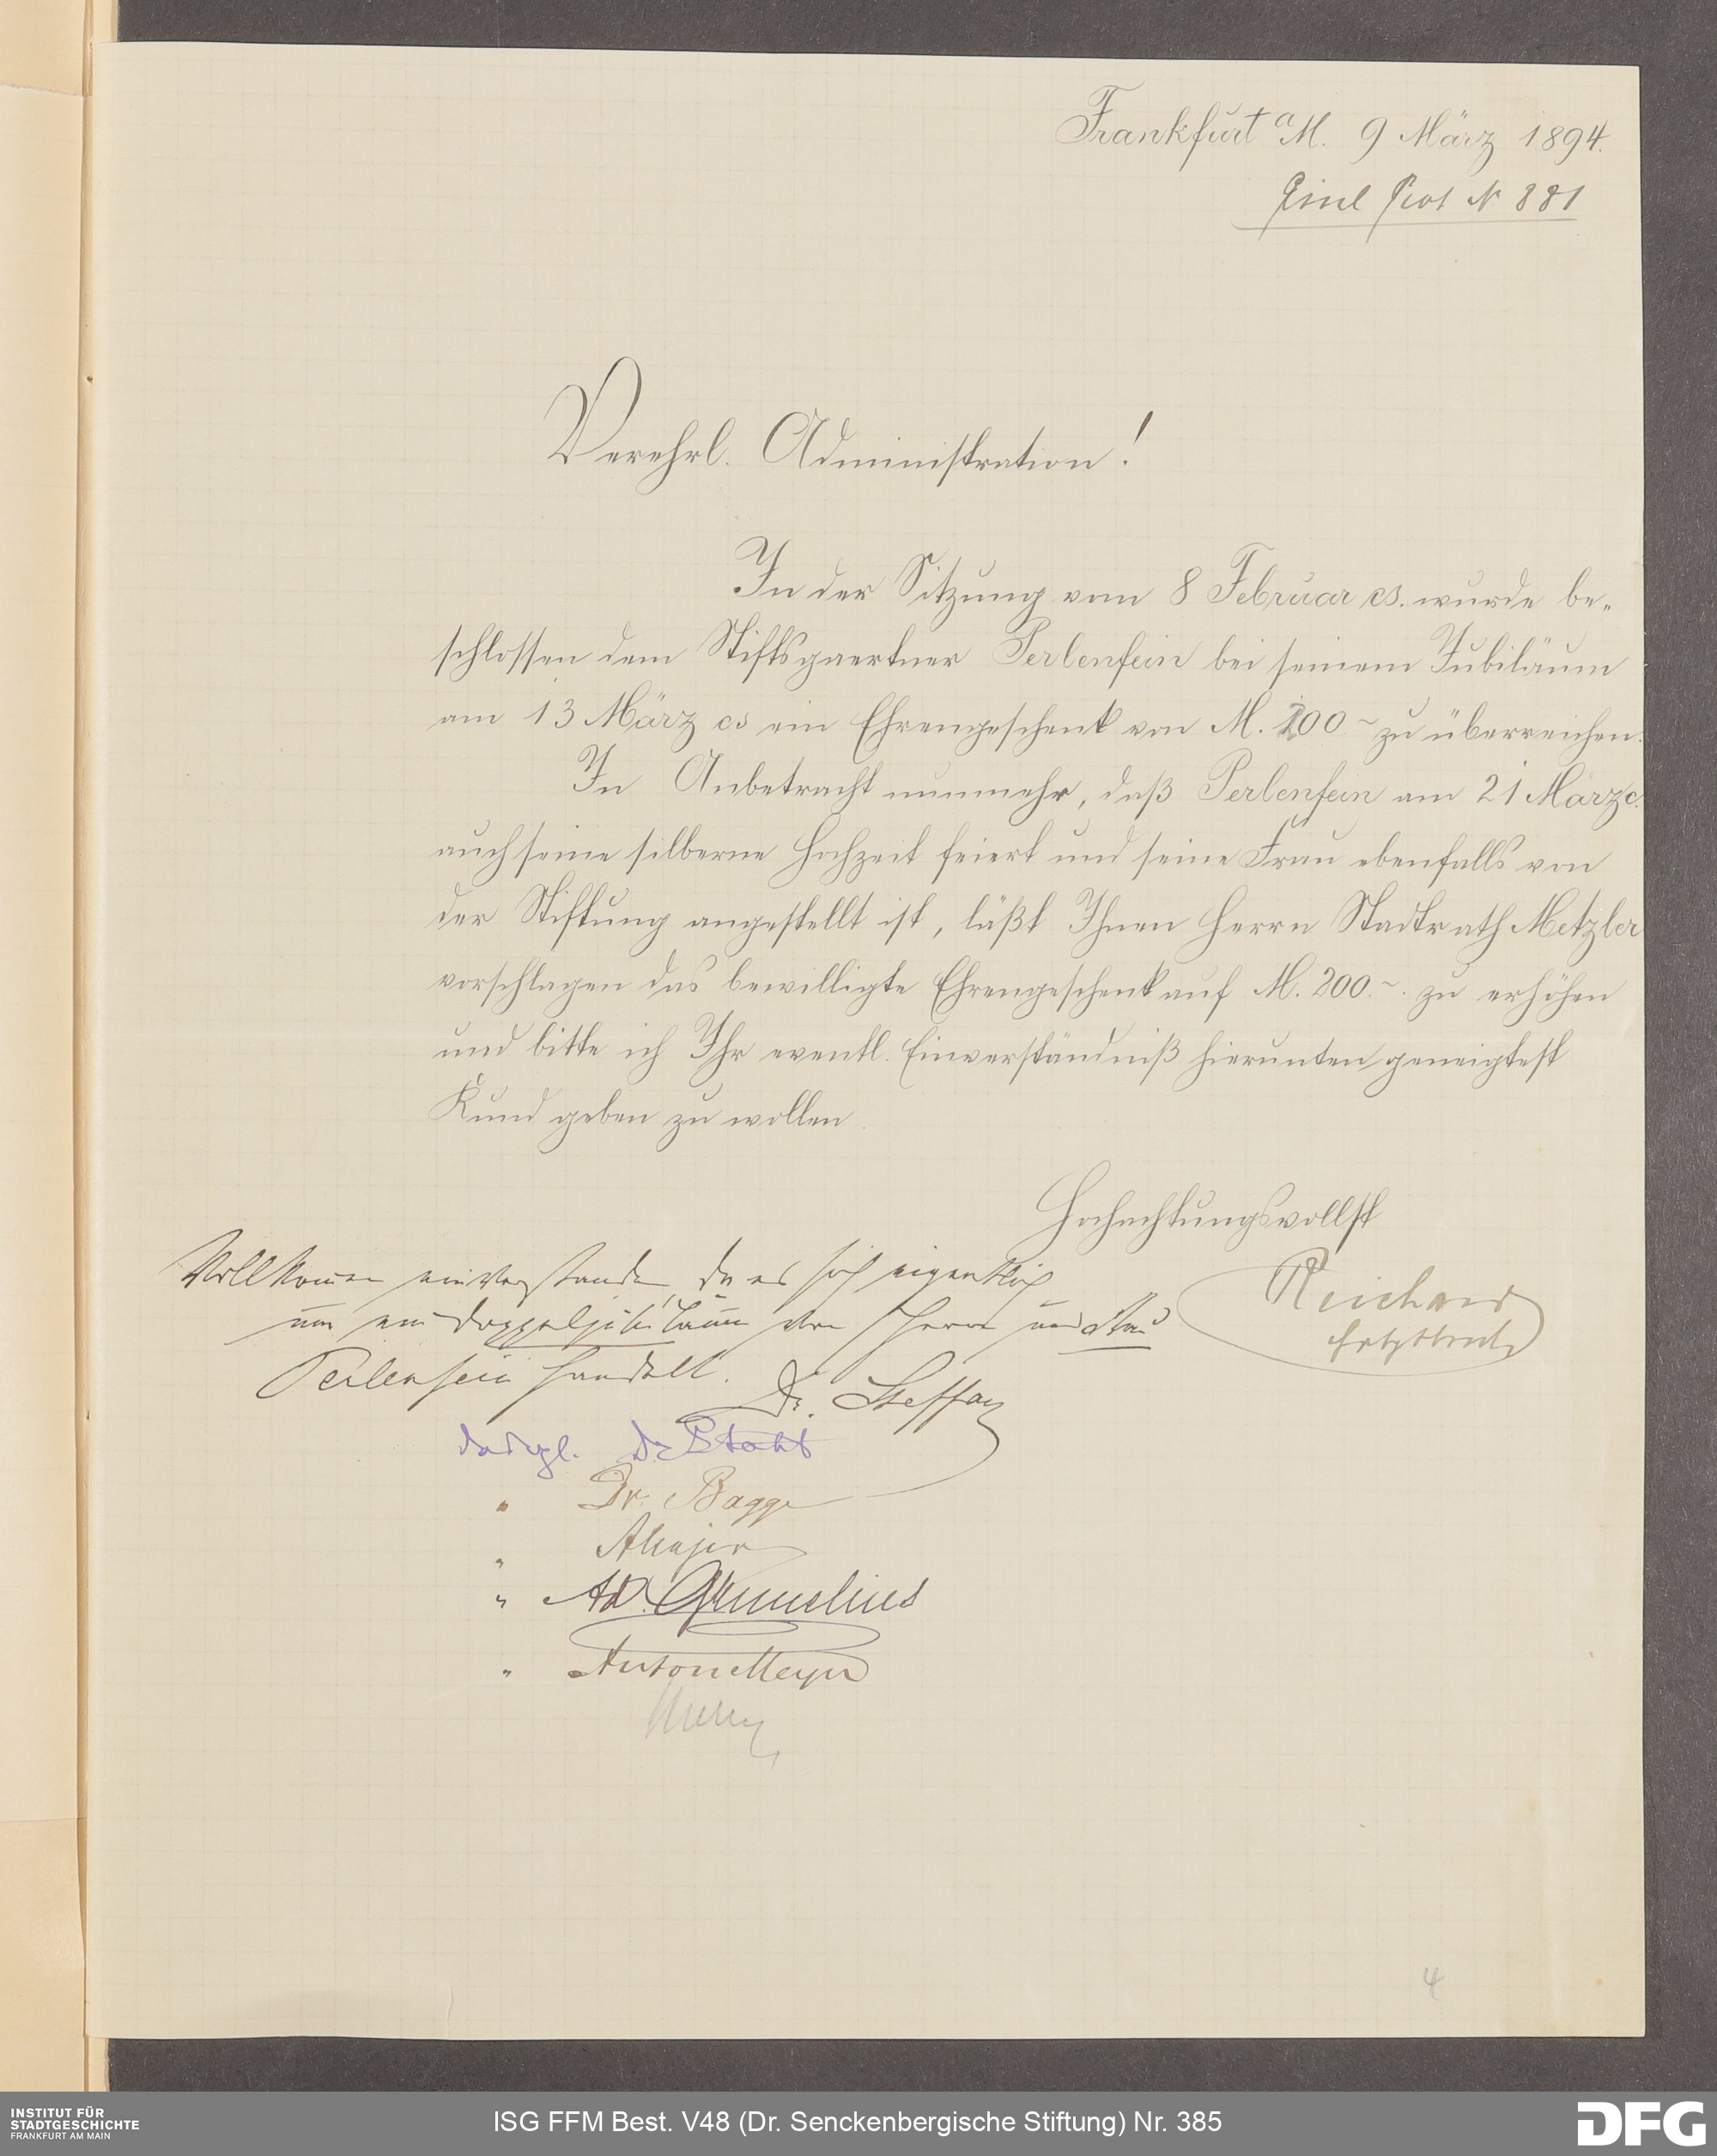 Frankfurt a M. 9 März 1894.
Einl Prot N 881
Verehrl. Administration!
In der Sitzung vom 8 Februar cs. wurde be-
schlossen dem Stiftsgaertner Perlenfein bei seinem Jubiläum
am 13 März cs ein Ehrengeschenk von M. 100 ~ zu überreichen.
In Anbetracht nunmehr, daß Perlenfein am 21 März c.
auch seine silberne Hochzeit feiert und seine Frau ebenfalls von
der Stiftung angestellt ist, läßt Ihnen Herrn Stadtrath Metzler
vorschlagen das bewilligte Ehrengeschenk auf M. 200.~. zu erhöhen
und bitte ich Ihr eventl. Einverständniß hierunten geneigtest
Kund geben zu wollen.
Hochachtungsvollst
Reichard
Vollkommen einverstanden, da es sich eigentlich
um ein Doppeljubiläum von Herrn und Frau
Perlenfein handelt. Dr. Steffan
desgl. Dr
" Dr. Bagge
"
" Ad. Gmelius
" Anton Meyer
4
INSTITUT FÜR
STADTGESCHICHTE
FRANKFURT AM MAIN
ISG FFM Best. V48 (Dr. Senckenbergische Stiftung) Nr. 385
DFG